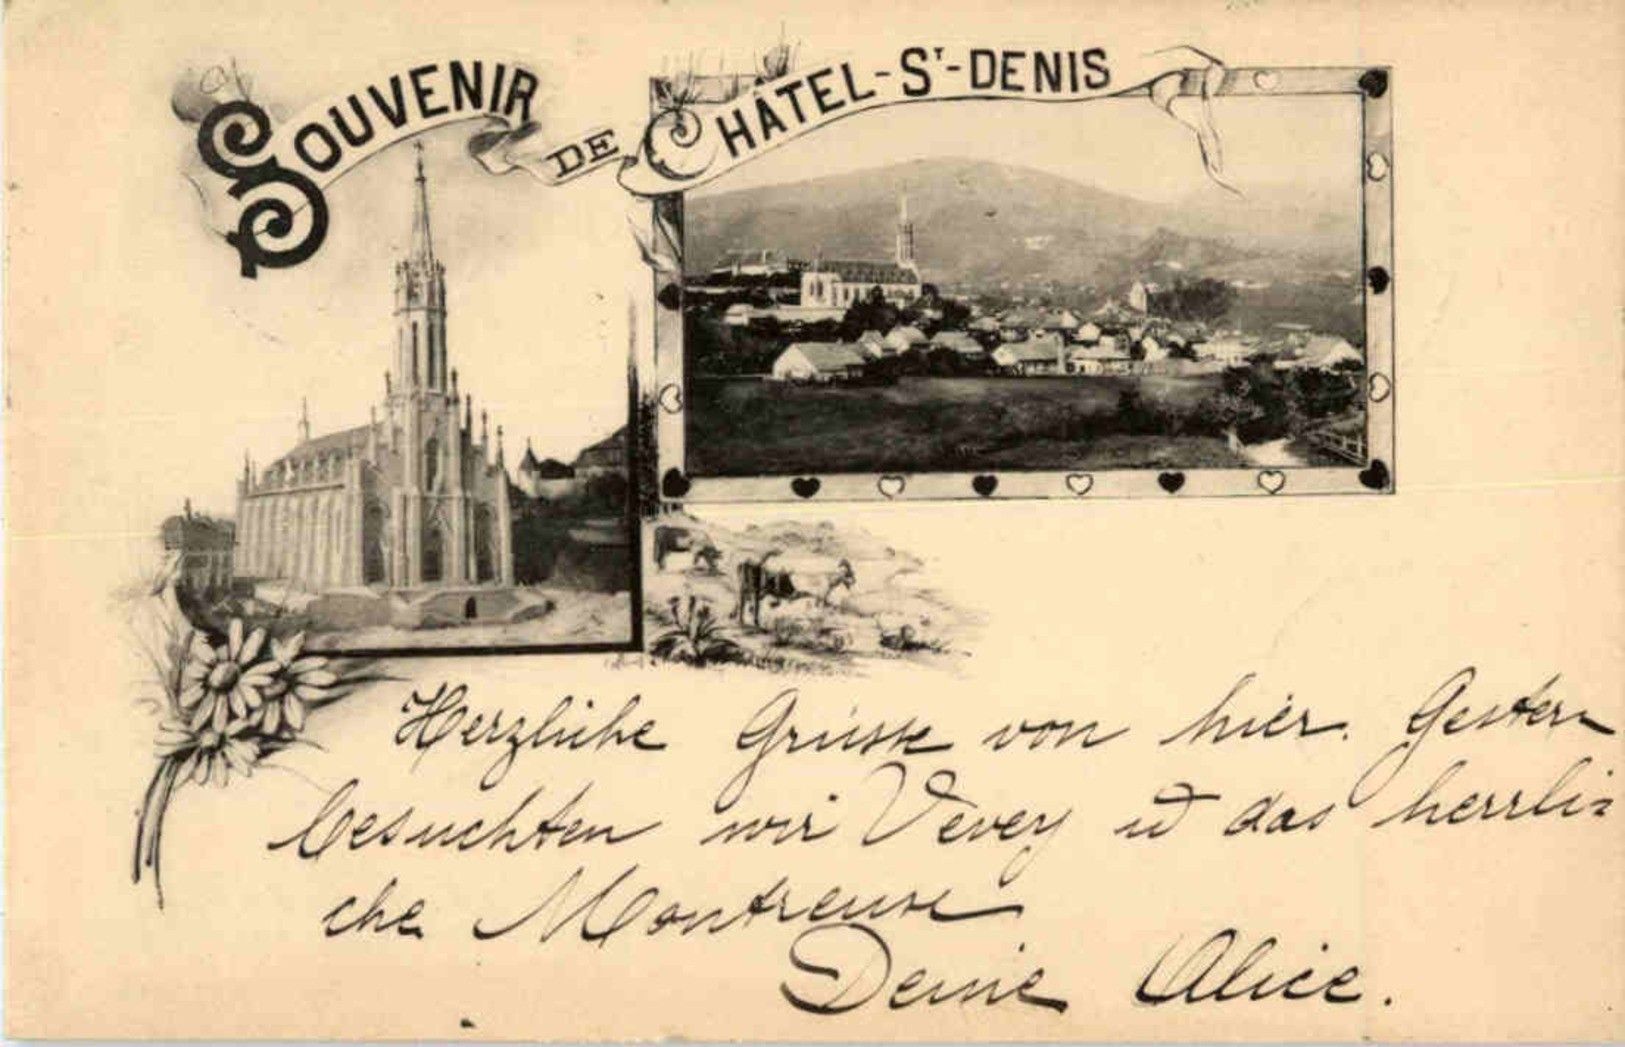 SOUVENIR DE CHÂTEL-ST-DENIS
Herzliche Grüsse von hier. Gestern
besuchten wir Vevey u das herrli=
che Montreux
Deine Alice.